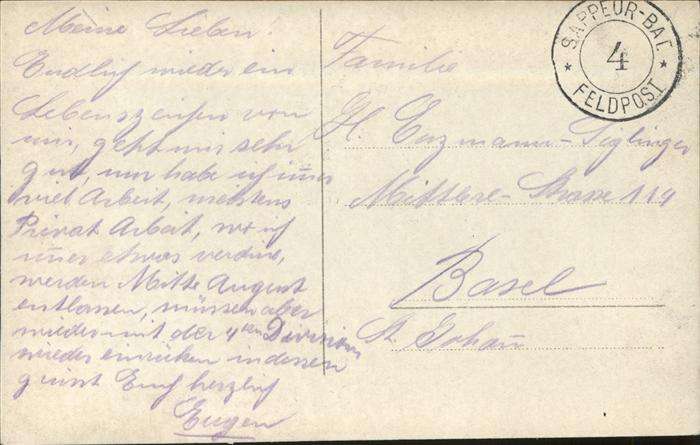 Meine Lieben!
Endlich wieder ein
Lebenszeichen von
mir, geht mir sehr
gut, nur habe ich im̄er
viel Arbeit, meistens
Privat Arbeit, wo ich
im̄er etwas verdine,
werden Mitte August
entlassen, müssen aber
wieder mit der 4ten Division
wieder einrücken indessen
grüsst Euch herzlich
Eugen
SAPPEUR-BAT.
4
FELDPOST
Familie
H. Enzmann-Siglinger
Mittlere-Strasse 114
Basel
St Johan̄